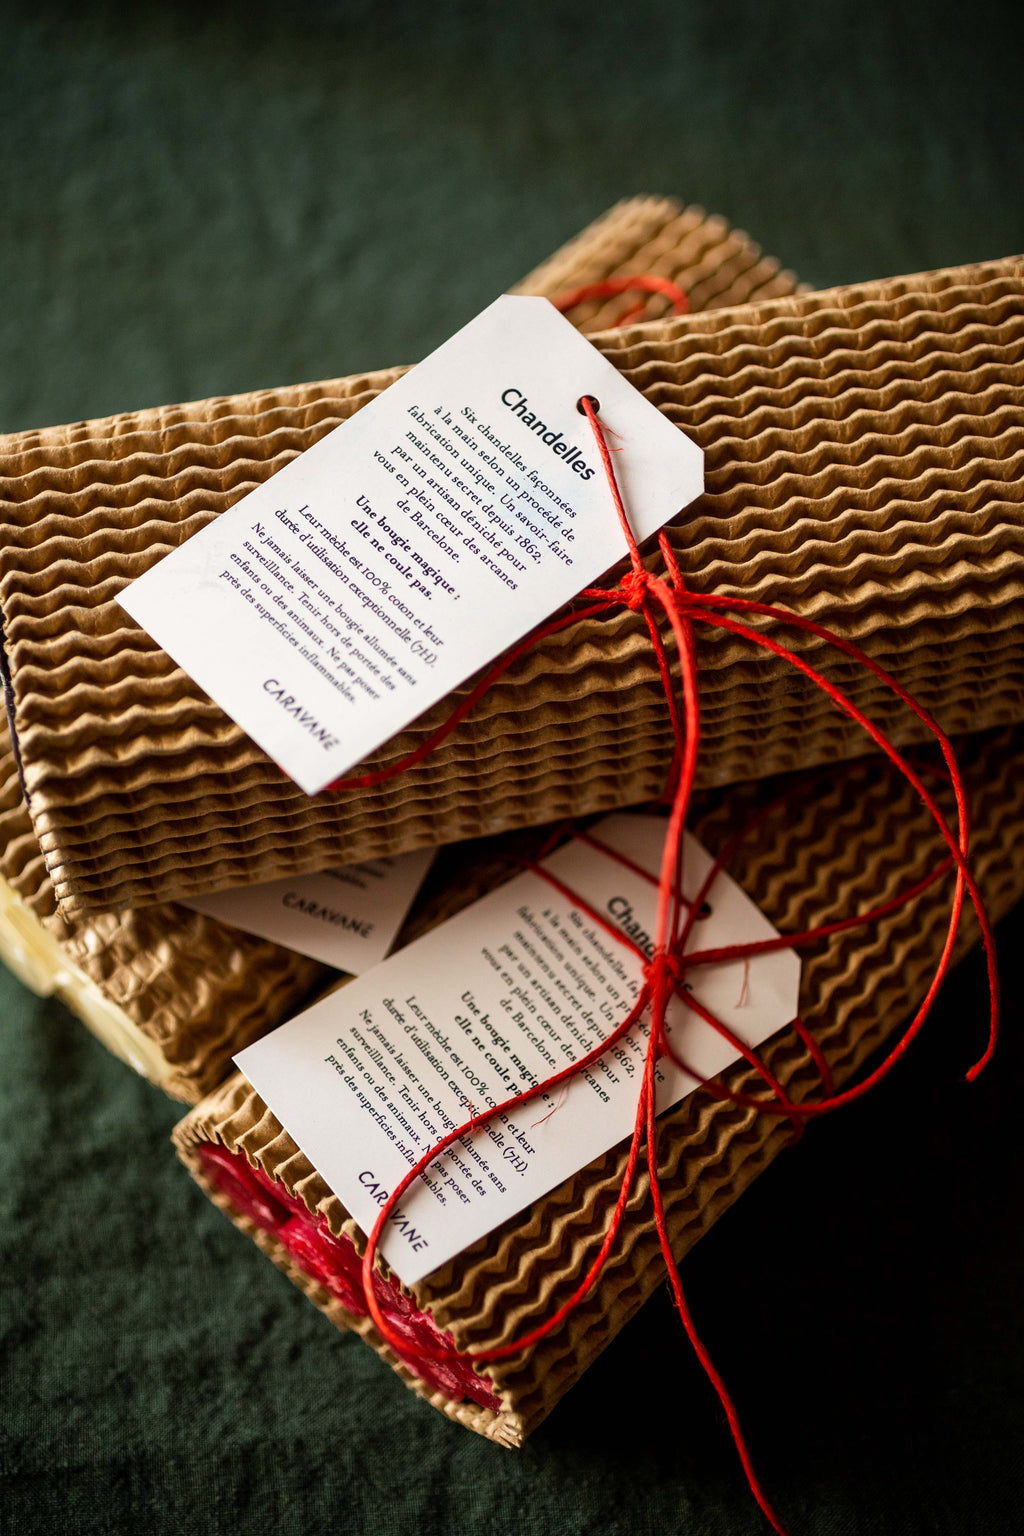 Chandelles
Six chandelles façonnées
à la main selon un procédé de
fabrication unique. Un savoir-faire
maintenu secret depuis 1862,
par un artisan déniché pour
vous en plein cœur des arcanes
de Barcelone.
Une bougie magique :
elle ne coule pas.
Leur mèche est 100% coton et leur
durée d'utilisation exceptionnelle (7H).
Ne jamais laisser une bougie allumée sans
surveillance. Tenir hors de portée des
enfants ou des animaux. Ne pas poser
près des superficies inflammables.
CARAVANE
CARAVANE
Six chandelles
à la main selon un
fabrication unique. Un savoir-faire
maintenu secret depuis 1862,
par un artisan déniché pour
vous en plein cœur des arcanes
de Barcelone.
Une bougie magique :
elle ne coule pas.
Leur mèche est 100% coton et leur
durée d'utilisation exceptionnelle (7H).
Ne jamais laisser une bougie allumée sans
surveillance. Tenir hors de portée des
enfants ou des animaux. Ne pas poser
près des superficies inflammables.
CARAVANE